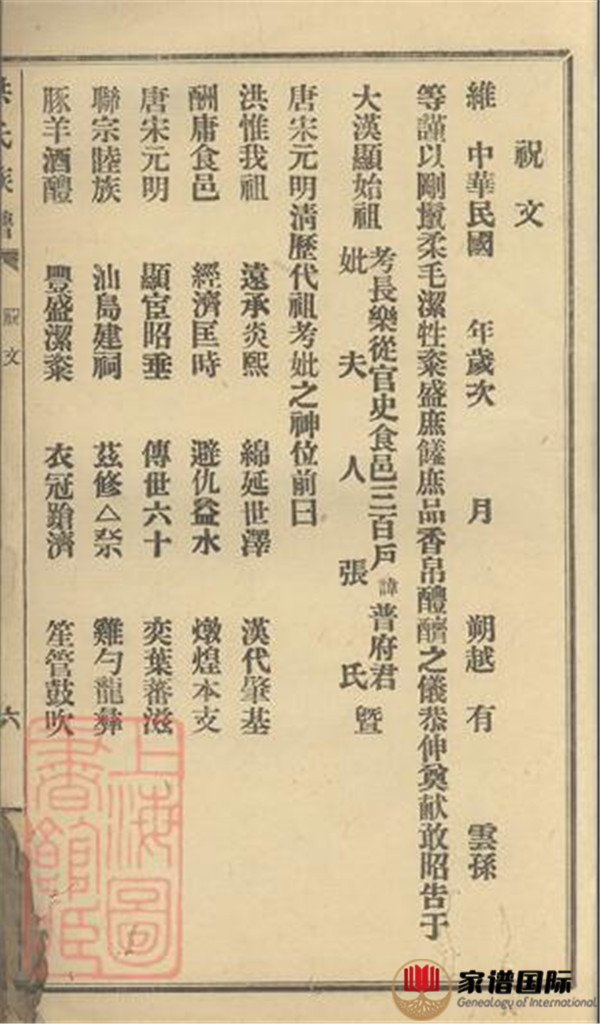 祝文
維 中華民國 年歲次 月 朔越有 雲孫
等謹以剛鬣柔毛潔牲粢盛庶饈庶品香帛醴醑之儀恭伸奠献敢昭告于
大漢顯始祖考長樂從官史食邑三百戶諱普府君
妣夫人張氏暨
唐宋元明淸歷代祖考妣之神位前曰
洪惟我祖 遠承炎熙 綿延世澤 漢代肇基
酬庸食邑 經濟匡時 避仇益水 燉煌本支
唐宋元明 顯宦昭垂 傳世六十 奕葉蕃滋
聯宗睦族 汕島建祠 茲修△祭 雞勺龍彝
豚羊酒醴 豐盛潔粢 衣冠蹌濟 笙管鼓吹
洪氏族譜 祝文 六
上海圖書館藏
家谱国际
Genealogy of International